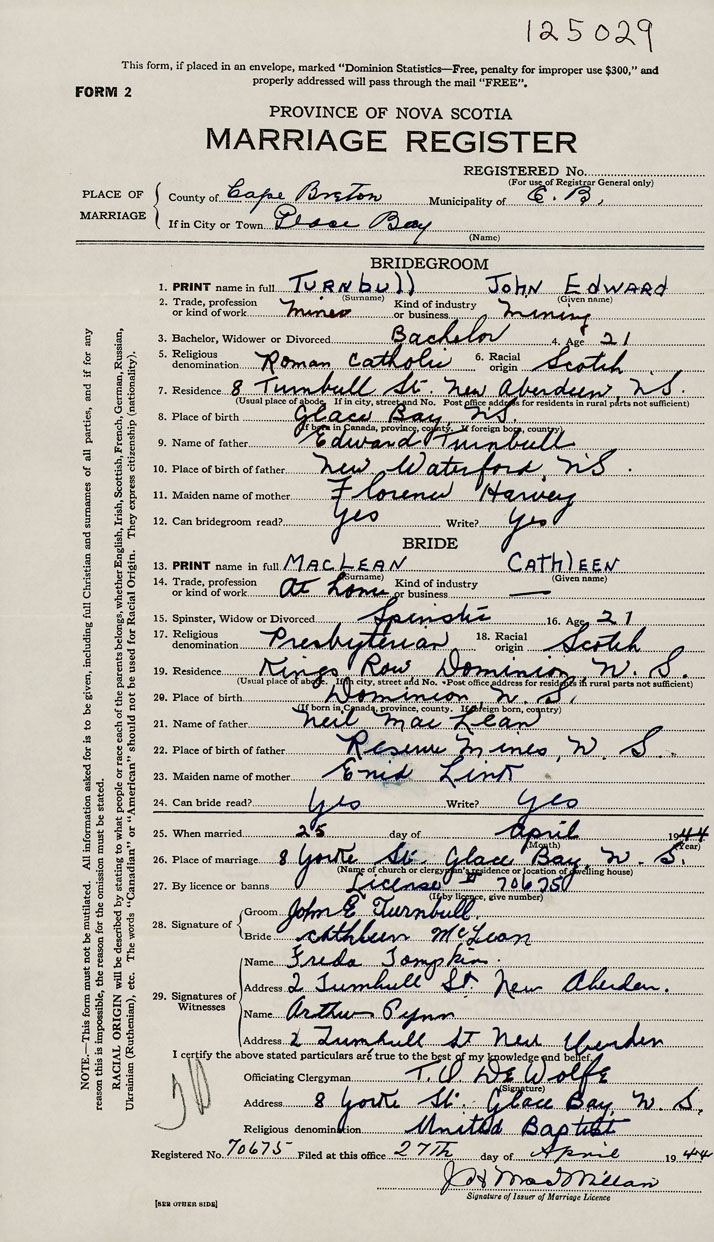 125029
This form, if placed in an envelope, marked "Dominion Statistics—Free, penalty for improper use $300," and
properly addressed will pass through the mail "FREE".
FORM 2
PROVINCE OF NOVA SCOTIA
MARRIAGE REGISTER
REGISTERED No.
(For use of Registrar General only)
PLACE OF MARRIAGE
County of Cape Breton Municipality of C. B.
If in City or Town Glace Bay
(Name)
BRIDEGROOM
1. PRINT name in full TURNBULL JOHN EDWARD
(Surname) (Given name)
2. Trade, profession or kind of work Miner Kind of industry or business Mining
3. Bachelor, Widower or Divorced Bachelor 4. Age 21
5. Religious denomination Roman Catholic 6. Racial origin Scotch
7. Residence 8 Turnbull St. New Aberdeen, N.S.
(Usual place of abode. If in city, street and No. Post office address for residents in rural parts not sufficient)
8. Place of birth Glace Bay, N.S.
(If born in Canada, province, county. If foreign born, country)
9. Name of father Edward Turnbull
10. Place of birth of father New Waterford N S.
11. Maiden name of mother Florence Harvey
12. Can bridegroom read? Yes Write? Yes
BRIDE
13. PRINT name in full MACLEAN CATHLEEN
(Surname) (Given name)
14. Trade, profession or kind of work At home Kind of industry or business —
15. Spinster, Widow or Divorced Spinster 16. Age 21
17. Religious denomination Presbyterian 18. Racial origin Scotch
19. Residence Kings Row Dominion, N. S.
(Usual place of abode. If in city, street and No. Post office address for residents in rural parts not sufficient)
20. Place of birth Dominion N. S.
(If born in Canada, province, county. If foreign born, country)
21. Name of father Neil MacLean
22. Place of birth of father Reserve Mines, N. S.
23. Maiden name of mother Enid Link
24. Can bride read? Yes Write? Yes
25. When married 25 day of April 1944
(Month) (Year)
26. Place of marriage 8 Yorke St. Glace Bay, N. S.
(Name of church or clergyman's residence or location of dwelling house)
27. By licence or banns License # 70675
(If by licence, give number)
28. Signature of
Groom John E Turnbull.
Bride Cathleen McLean
29. Signatures of Witnesses
Name Freda Tompkin.
Address 2 Turnbull St New Aberdeen.
Name Arthur Pynn
Address 2 Turnbull St New Aberdeen
I certify the above stated particulars are true to the best of my knowledge and belief.
Officiating Clergyman T. D DeWolfe
(Signature)
Address 8 Yorke St. Glace Bay, N. S.
Religious denomination United Baptist
Registered No. 70675 Filed at this office 27th day of April 1944
J H MacMillan
Signature of Issuer of Marriage Licence
[SEE OTHER SIDE]
NOTE.—This form must not be mutilated. All information asked for is to be given, including full Christian and surnames of all parties, and if for any
reason this is impossible, the reason for the omission must be stated.
RACIAL ORIGIN will be described by stating to what people or race each of the parents belongs, whether English, Irish, Scottish, French, German, Russian,
Ukrainian (Ruthenian), etc. The words "Canadian" or "American" should not be used for Racial Origin. They express citizenship (nationality).